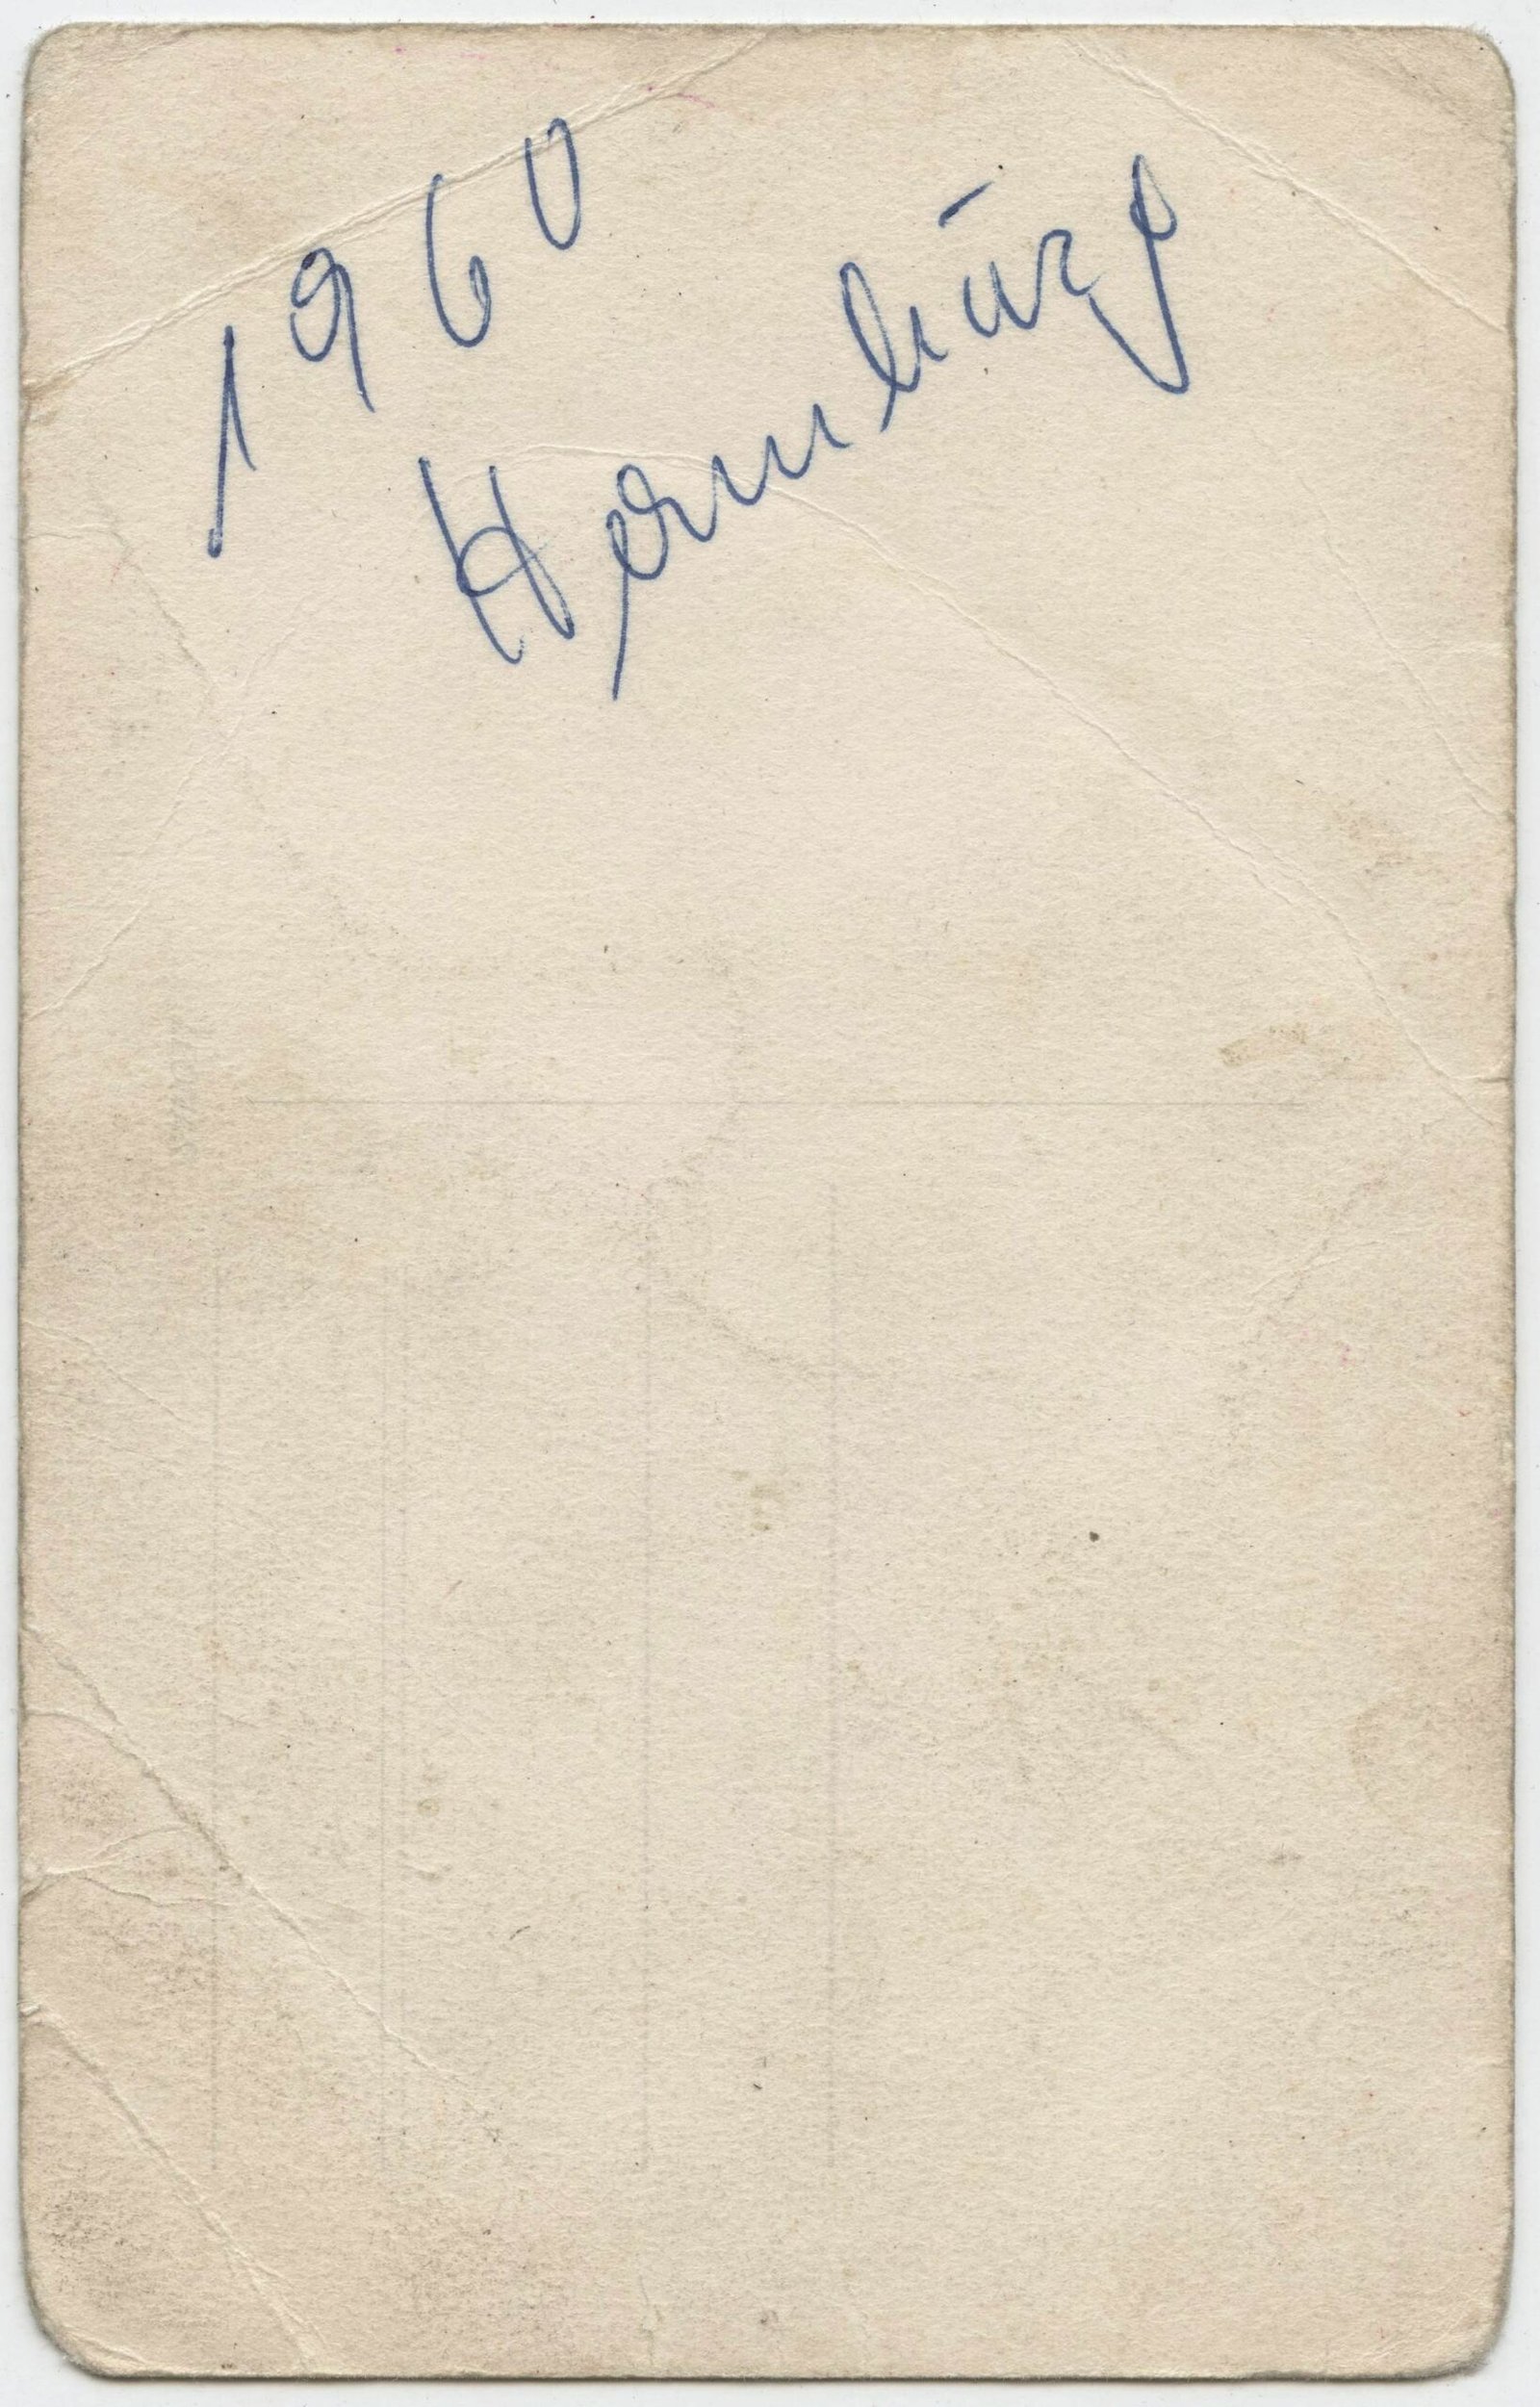 1960
Hamburg